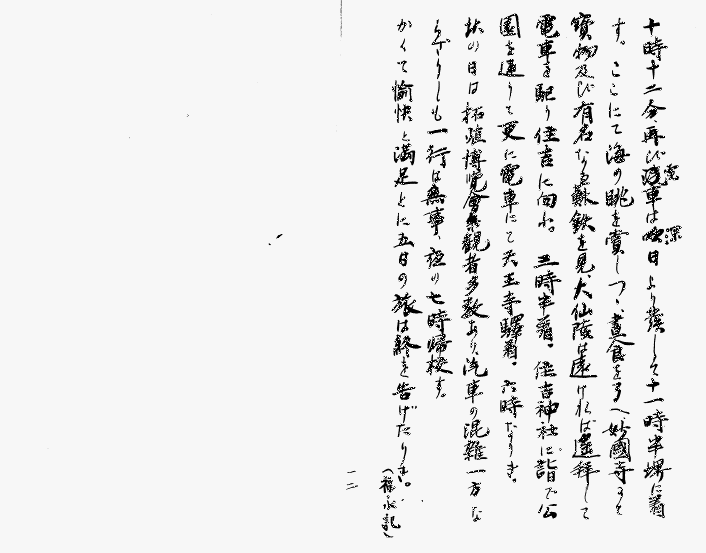 十時十二分再び電車は深日より発して十一時半堺に着
す。ここにて海の眺を賞しつゝ昼食をすへ妙國寺にて
寶物及び有名なる蘇鉄を見、大仙陵は遠ければ遥拝して
電車を駆り住吉に向ふ。三時半着。住吉神社に詣で公
園を通りて更に電車にて天王寺驛着。六時なりき。
此の日は拓殖博覧會観者多数あり、汽車の混雑一方な
らざりしも一行は無事、夜の七時帰校す。
かくて愉快と満足とに五日の旅は終を告げたりき。
（福永記）
一二